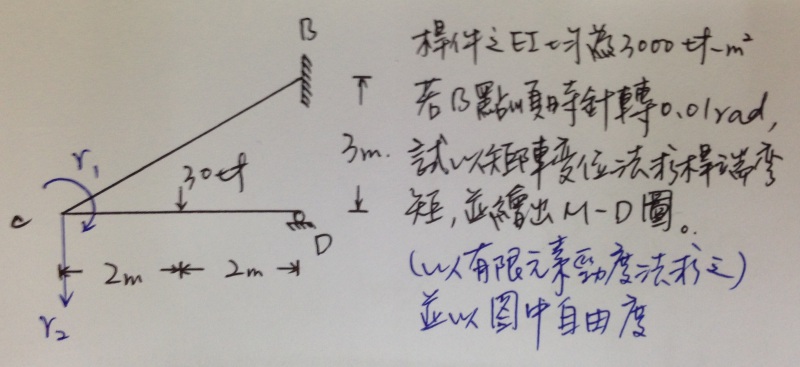 B
桿件之EI均為3000tf-m²
若B點順時針轉0.01rad,
試以矩陣變位法求桿端彎
矩,並繪出M-D圖。
(以有限元素勁度法求之)
並以圖中自由度
r₁
30tf
3m.
C
D
2m
2m
r₂